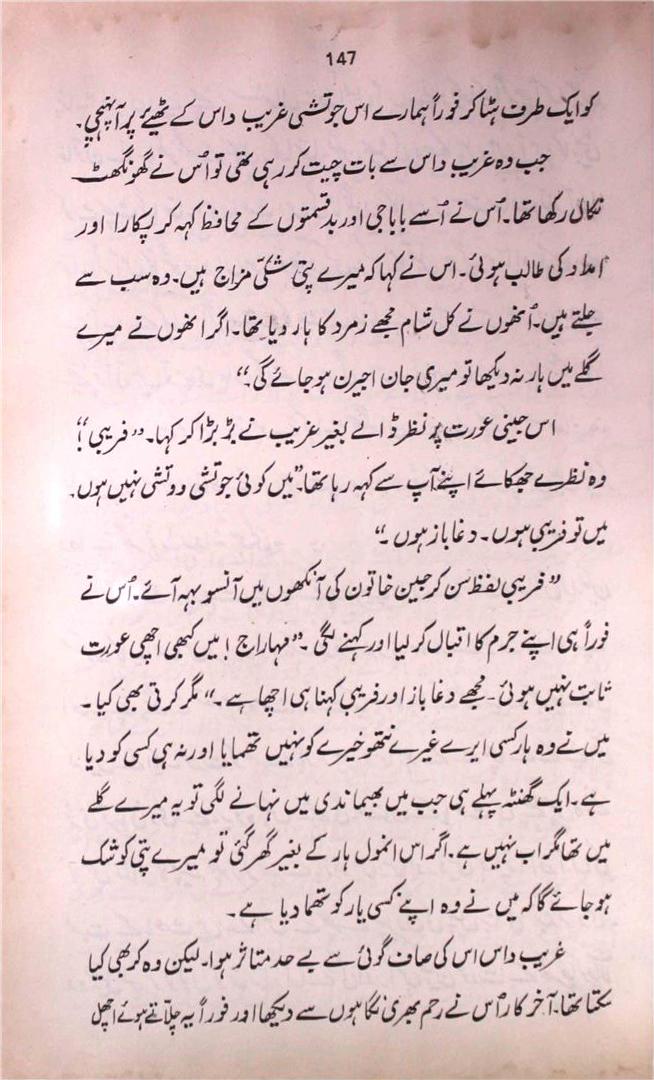 147
کو ایک طرف ہٹا کر فوراً ہمارے اس جوتشی غریب داس کے ٹھیئے پر آ پہنچی۔
جب وہ غریب داس سے بات چیت کر رہی تھی تو اُس نے گھونگھٹ
نکال رکھا تھا۔ اُس نے اُسے بابا جی اور بدقسمتوں کے محافظ کہہ کر پکارا اور
امداد کی طالب ہوئی۔ اس نے کہا کہ میرے پتی شکّی مزاج ہیں۔ وہ سب سے
جلتے ہیں۔ اُنھوں نے کل شام مجھے زمرد کا ہار دیا تھا۔ اگر انھوں نے میرے
گلے میں ہار نہ دیکھا تو میری جان اجیرن ہو جائے گی۔“
اس جینی عورت پر نظر ڈالے بغیر غریب نے بڑبڑا کر کہا۔ ”فریبی“!
وہ نظرے جھکائے اپنے آپ سے کہہ رہا تھا۔ ”میں کوئی جوتشی ووتشی نہیں ہوں۔
میں تو فریبی ہوں۔ دغا باز ہوں۔“
”فریبی لفظ سن کر جین خاتون کی آنکھوں میں آنسو بہہ آئے۔ اُس نے
فوراً ہی اپنے جرم کا اقبال کر لیا اور کہنے لگی۔ ”مہاراج! میں کبھی اچھی عورت
ثابت نہیں ہوئی۔ مجھے دغا باز اور فریبی کہنا ہی اچھا ہے۔“ مگر کرتی بھی کیا۔
میں نے وہ ہار کسی ایرے غیرے نتھو خیرے کو نہیں تھمایا اور نہ ہی کسی کو دیا
ہے۔ ایک گھنٹہ پہلے ہی جب میں بھیما ندی میں نہانے لگی تو یہ میرے گلے
میں تھا مگر اب نہیں ہے۔ اگر اس انمول ہار کے بغیر گھر گئی تو میرے پتی کو شک
ہو جائے گا کہ میں نے وہ اپنے کسی یار کو تھما دیا ہے۔
غریب داس اس کی صاف گوئی سے بے حد متاثر ہوا۔ لیکن وہ کر بھی کیا
سکتا تھا۔ آخر کار اُس نے رحم بھری نگاہوں سے دیکھا اور فوراً یہ چلّاتے ہوئے اچھل